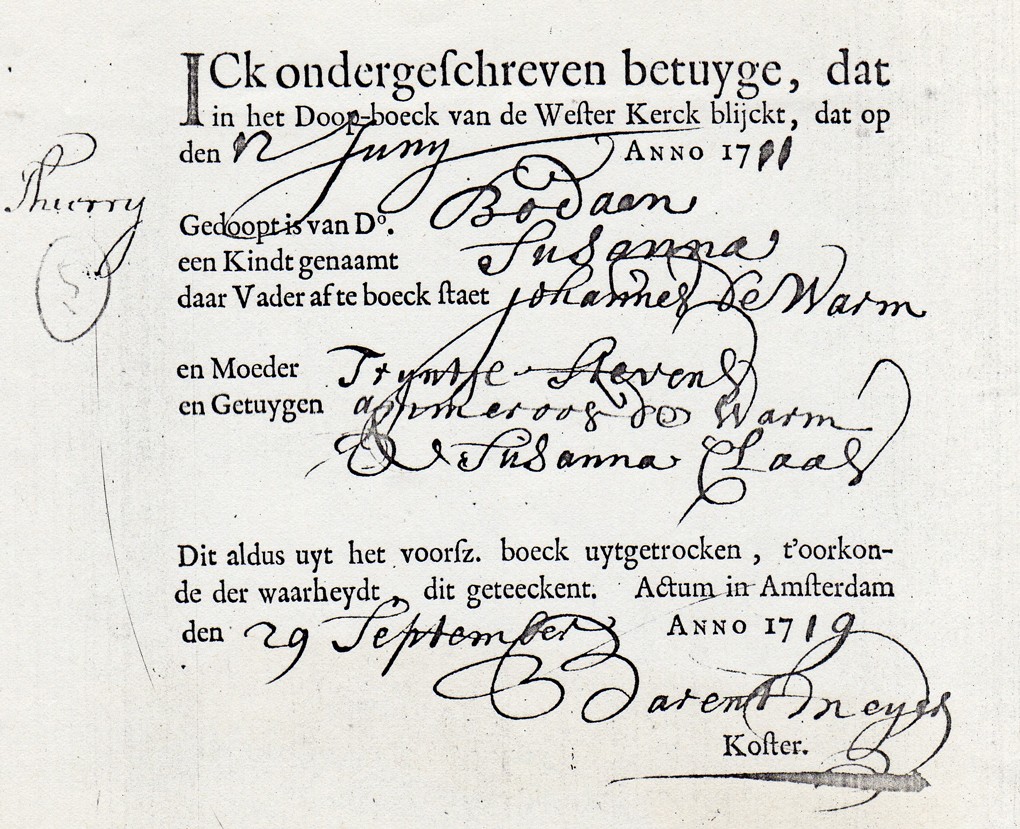 ICk ondergeſchreven betuyge, dat
in het Doop-boeck van de Weſter Kerck blijckt, dat op
den 12 Juny ANNO 1711
Thierry
Gedoopt is van Dº. Bodaen
een Kindt genaamt Susanna
daar Vader af te boeck ſtaet Johannes De Warm
en Moeder Tryntje Stevens
en Getuygen de Warm
& Susanna Claas
Dit aldus uyt het voorſz. boeck uytgetrocken, t'oorkon-
de der waarheydt, dit geteeckent. Actum in Amſterdam
den 29 September ANNO 1719
Barent Meyer
Koſter.